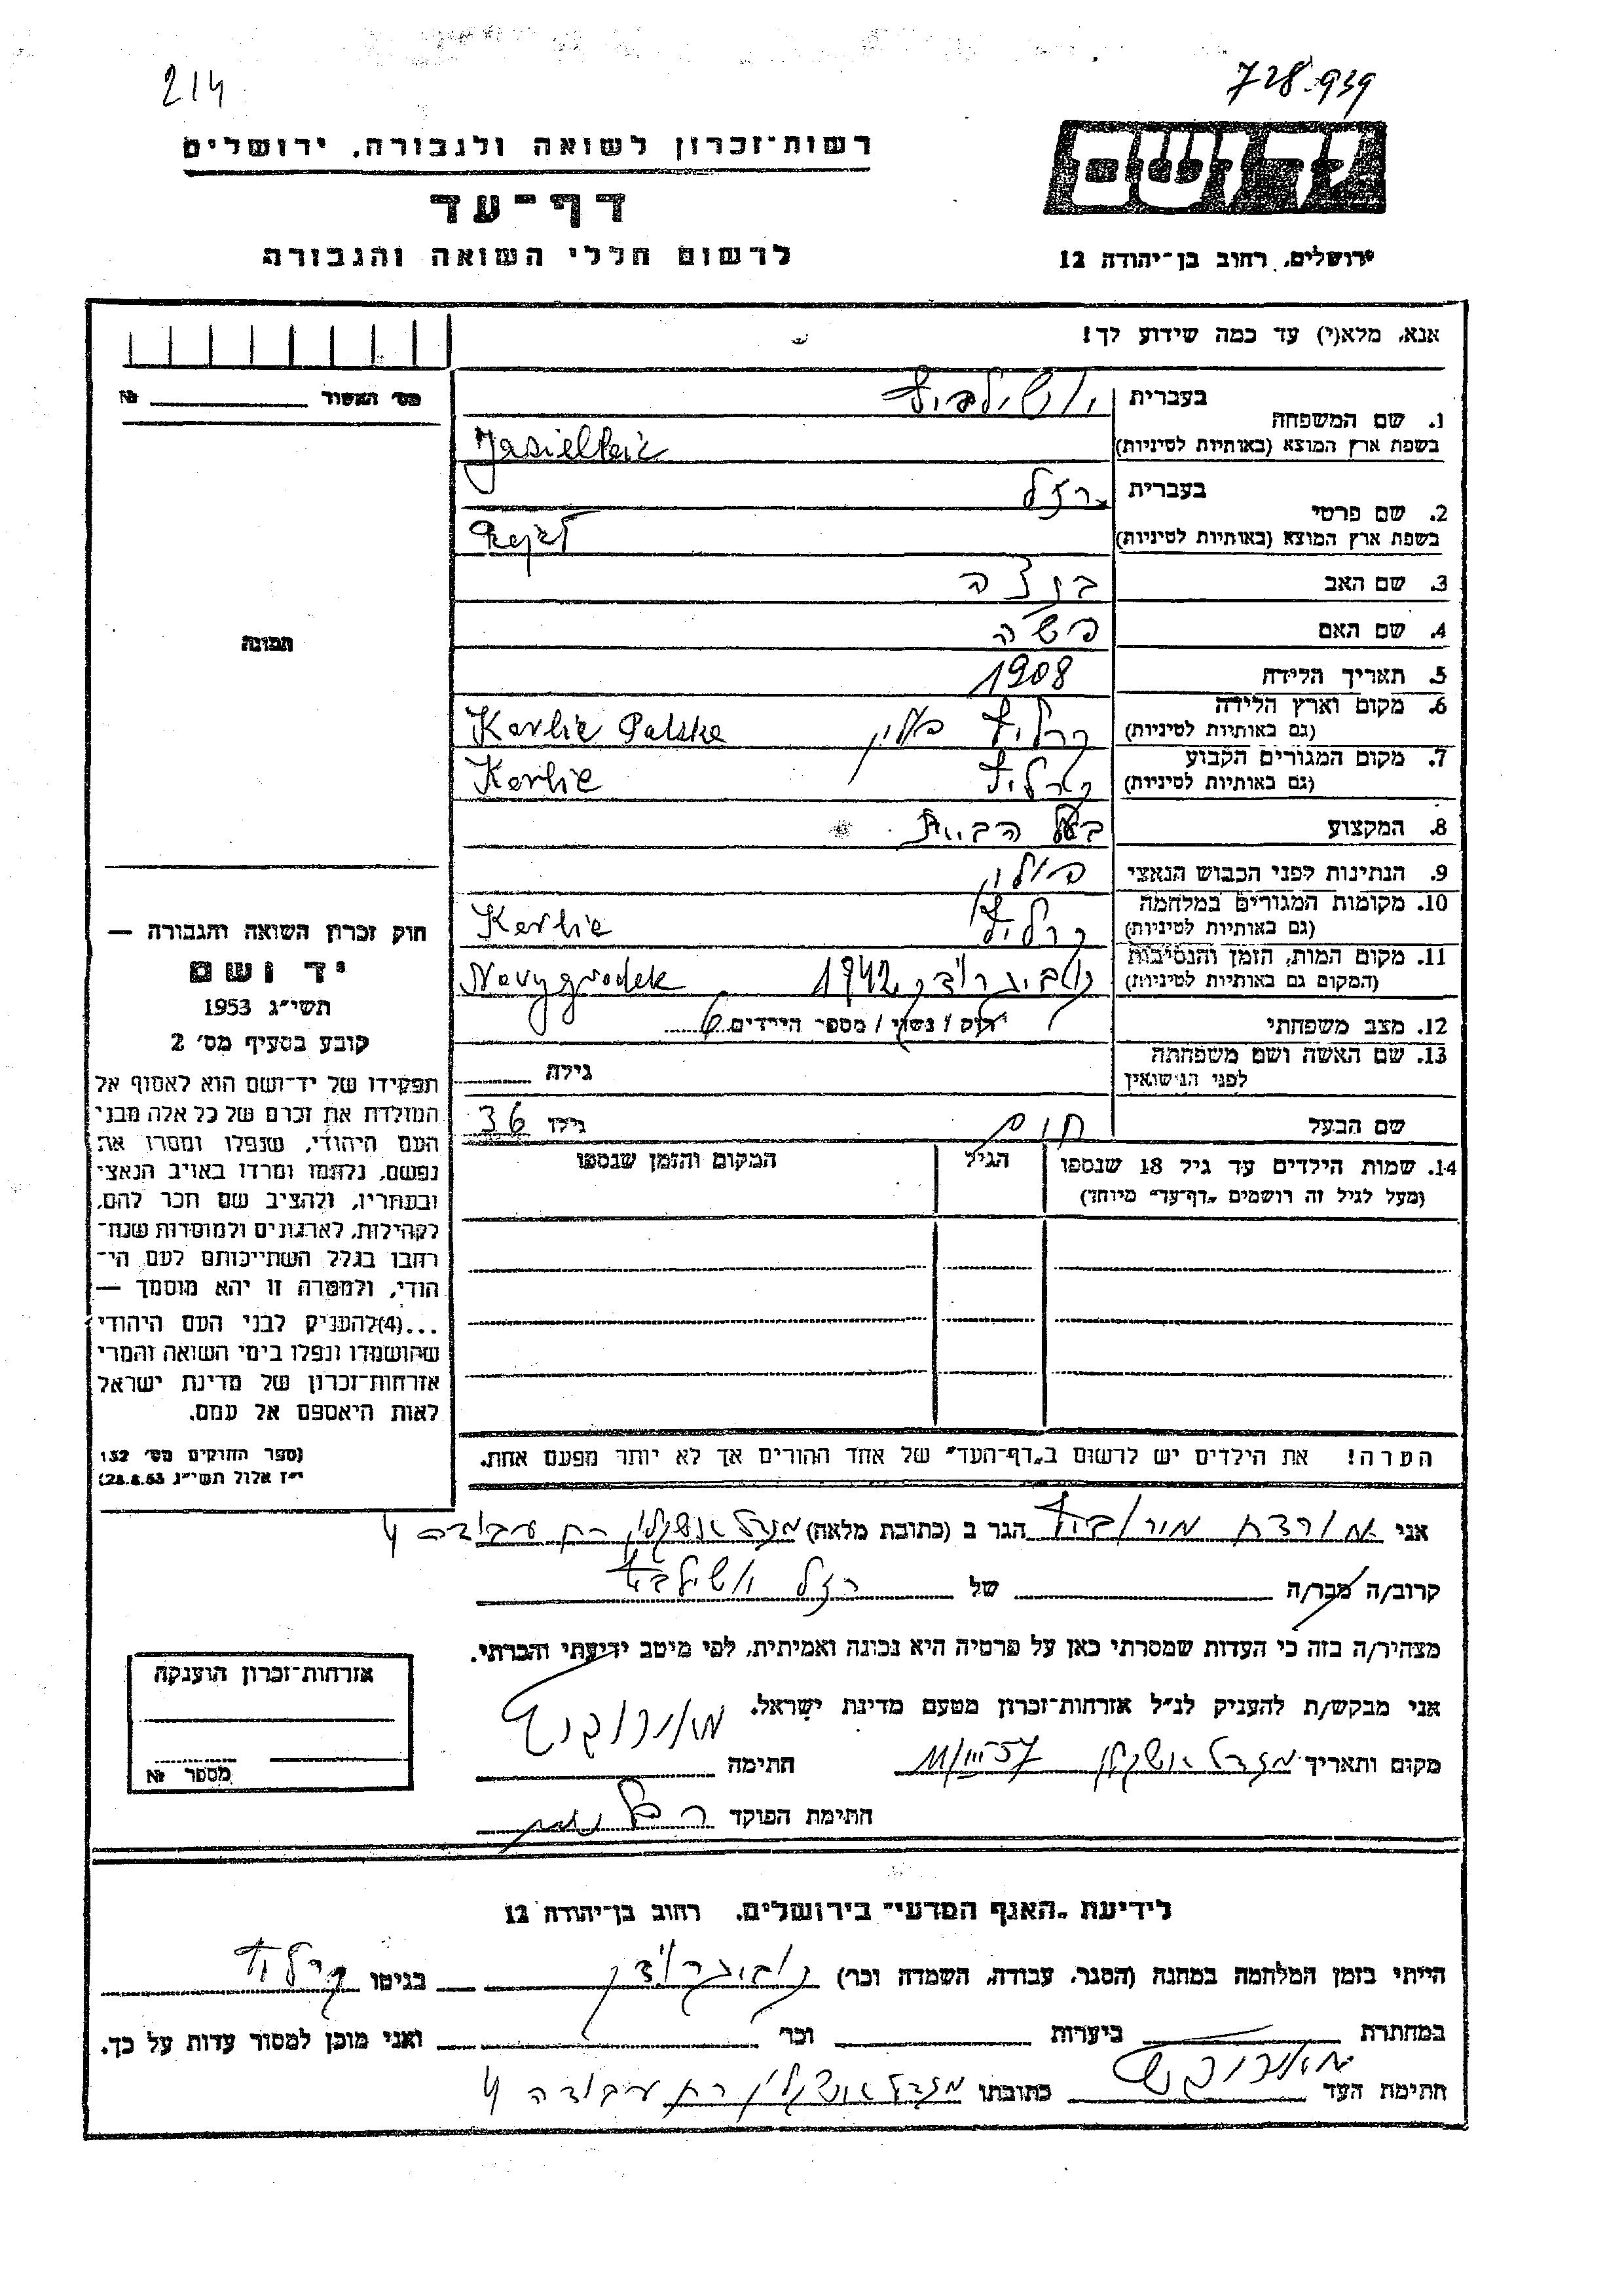 214
728.939
רשות־זכרון לשואה ולגבורה, ירושלים
דף־עד
לרשום חללי השואה והגבורה
ירושלים, רחוב בן־יהודה 12
אנא, מלא(י) עד כמה שידוע לך!
מס׳ האשור № 
1. שם המשפחה
בעברית יושילביץ
בשפת ארץ המוצא (באותיות לטיניות)
2. שם פרטי
בעברית רזל
בשפת ארץ המוצא (באותיות לטיניות) Rejzl
3. שם האב בנצה
4. שם האם פשה
5. תאריך הלידה 1908
6. מקום וארץ הלידה קרליץ פולין Korlic Polska
(גם באותיות לטיניות)
7. מקום המגורים הקבוע קרליץ Korlic
(גם באותיות לטיניות)
8. המקצוע בעל הבית
9. הנתינות לפני הכבוש הנאצי פולין
10. מקומות המגורים במלחמה קרליץ Korlic
(גם באותיות לטיניות)
11. מקום המות, הזמן והנסיבות 1942 Novygrodek
(המקום גם באותיות לטיניות)
12. מצב משפחתי רוק / נשוי / מספר הילדים 6
13. שם האשה ושם משפחתה גילה
לפני הנישואין
שם הבעל חיים גילו 36
14. שמות הילדים עד גיל 18 שנספו הגיל המקום והזמן שנספו
(מעל לגיל זה רושמים „דף־עד״ מיוחד)
הערה! את הילדים יש לרשום ב„דף־העד״ של אחד ההורים אך לא יותר מפעם אחת.
תמונה
חוק זכרון השואה והגבורה —
יד ושם
תשי״ג 1953
קובע בסעיף מס׳ 2
תפקידו של יד־ושם הוא לאסוף אל
המולדת את זכרם של כל אלה מבני
העם היהודי, שנפלו ומסרו את
נפשם, נלחמו ומרדו באויב הנאצי
ובעוזריו, ולהציב שם וזכר להם,
לקהילות, לארגונים ולמוסדות שנח־
רבו בגלל השתייכותם לעם הי־
הודי, ולמטרה זו יהא מוסמך —
...(4)להעניק לבני העם היהודי
שהושמדו ונפלו בימי השואה והמרי
אזרחות־זכרון של מדינת ישראל
לאות היאספם אל עמם.
(ספר החוקים מס׳ 132
י״ז אלול תשי״ג 28.8.53)
אני הגר ב (כתובת מלאה) מגדל אשקלון רח עבודה 4
קרוב/ה מכר/ה של רזל יושילביץ
מצהיר/ה בזה כי העדות שמסרתי כאן על פרטיה היא נכונה ואמיתית, לפי מיטב ידיעתי והכרתי.
אני מבקש/ת להעניק לנ״ל אזרחות־זכרון מטעם מדינת ישראל.
מקום ותאריך מגדל אשקלון 11/III 57 חתימה
חתימת הפוקד
אזרחות־זכרון הוענקה
מספר №
לידיעת „האגף המדעי״ בירושלים, רחוב בן־יהודה 12
הייתי בזמן המלחמה במחנה (הסגר, עבודה, השמדה וכו׳) בגיטו קרליץ
במחתרת ביערות וכו׳ ואני מוכן למסור עדות על כך.
חתימת העד כתובתו מגדל אשקלון רח עבודה 4